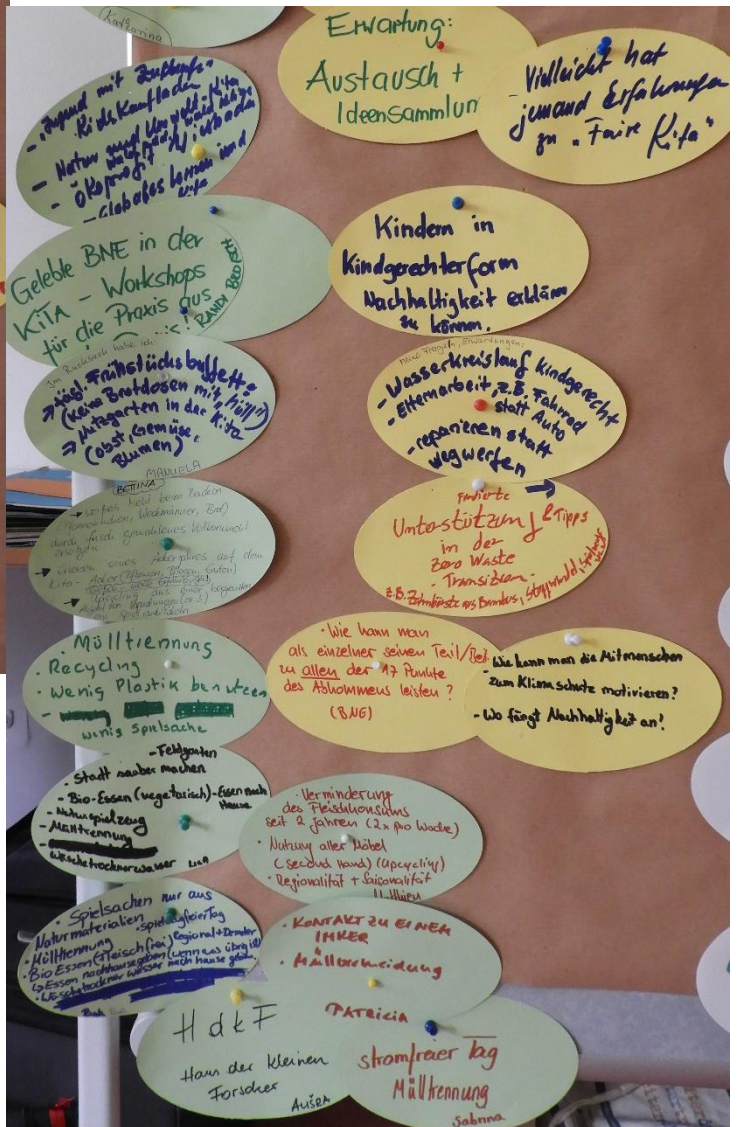 Katharina
Erwartung:
Austausch +
Ideensammlun
- Vielleicht hat
jemand Erfahrungen
zu "Faire Kita"
- "Jugend mit Zukunft"
- Natur und Umwelt-Kita
- Ökoprofit
- Globales Lernen und
Kita
Gelebte BNE in der
KiTA - Workshops
für die Praxis aus
RANDI
Kindern in
Kindgerechterform
Nachhaltigkeit erklären
zu können.
Im Rucksack habe ich:
→ tägl. Frühstücksbuffett
(keine Brotdosen mit "Müll")
→ Nutzgarten in der Kita
(Obst, Gemüse,
Blumen)
MANUELA
meine Fragen, Erwartungen:
- Wasserkreislauf Kindgerecht
- Elternarbeit, z.B. Fahrrad
statt Auto
- reparieren statt
wegwerfen
BETTINA
→ weißes Mehl beim Backen
durch frisch gemahlenes Vollkornmehl
→ Erleben eines Ackerjahres auf dem
Kita-Acker (Pflanzen, Pflegen, Ernten)
Fundierte
Unterstützung & Tipps
in der
Zero Waste
- Transition.
z.B. Zahnbürste aus Bambus, Stoffwindel,
• Mülltrennung
- Recycling
- Wenig Plastik benutzen
- wenig Spielsache
• Wie kann man
als einzelner seinen Teil/
zu allen der 17 Punkte
des Abkommens leisten?
(BNE)
- Wie kann man die Mitmenschen
zum Klimaschutz motivieren?
- Wo fängt Nachhaltigkeit an?
- Feldgarten
- Stadt sauber machen
- Bio-Essen (vegetarisch) - Essen nach
Hause
- Naturspielzeug
- Mülltrennung
Wäschetrocknerwasser LISA
• Verminderung
des Fleischkonsums
seit 2 Jahren (2x pro Woche)
• Nutzung alter Möbel
(second Hand) (Upcycling)
• Regionalität + Saisonalität
• Spielsachen nur aus
Naturmaterialien • spielzeugfreier Tag
• Mülltrennung
• Bio Essen (Fleisch frei) Regional + Demeter
↳ Essen nachhausegeben (wenn was übrig ist)
• Wäschetrockner wasser nach hause geben
• KONTAKT ZU EINEM
IMKER
• Müllvermeidung
PATRICIA
HdkF
Haus der kleinen
Forscher
AUŠRA
stromfreier Tag
Mülltrennung
Sabrina